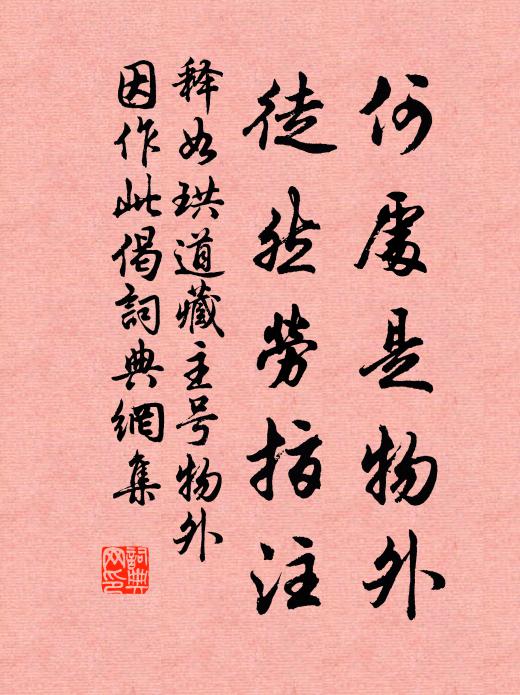 何處是物外
徒然勞指注
释如珙道藏主号物外
因作此偈詞典網集
詞典
网印